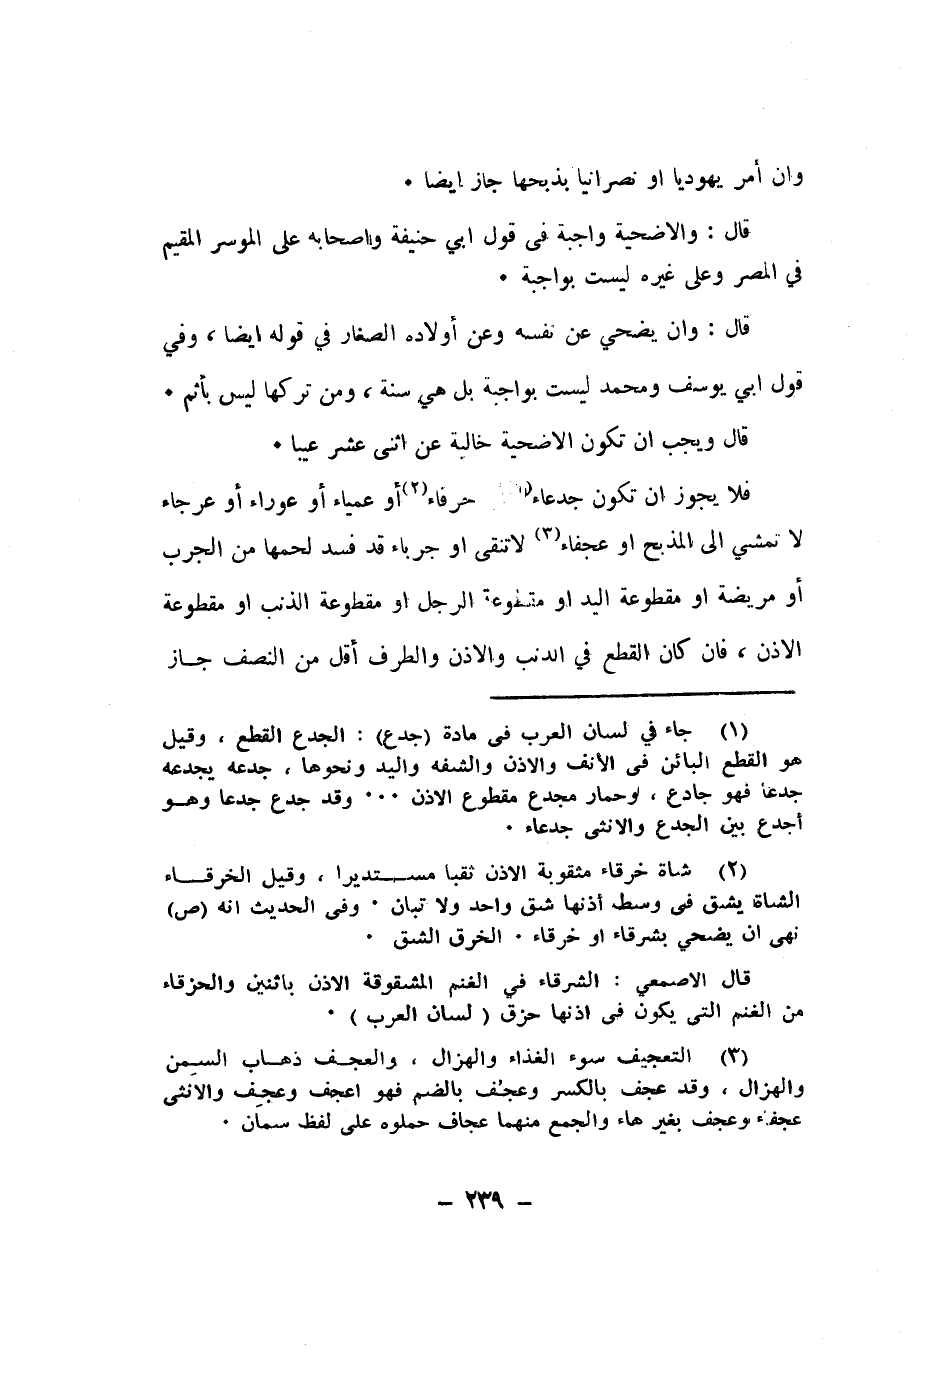 وان أمر يهوديا او نصرانيا بذبحها جاز ايضا ٠
قال : والاضحية واجبة فى قول ابي حنيفة واصحابه على الموسر المقيم
في المصر وعلى غيره ليست بواجبة ٠
قال : وان يضحي عن نفسه وعن أولاده الصغار في قوله ايضا ، وفي
قول ابي يوسف ومحمد ليست بواجبة بل هي سنة ، ومن تركها ليس بأثم ٠
قال ويجب ان تكون الاضحية خالية عن اثنى عشر عيبا ٠
فلا يجوز ان تكون جدعاء(١) خرقاء(٢) أو عمياء أو عوراء أو عرجاء
لا تمشي الى المذبح او عجفاء(٣) لاتنقى او جرباء قد فسد لحمها من الجرب
أو مريضة او مقطوعة اليد او مقطوعة الرجل او مقطوعة الذنب او مقطوعة
الاذن ، فان كان القطع في الذنب والاذن والطرف أقل من النصف جاز
(١) جاء في لسان العرب فى مادة (جدع) : الجدع القطع ، وقيل
هو القطع البائن فى الأنف والاذن والشفه واليد ونحوها ، جدعه يجدعه
جدعا فهو جادع ، وحمار مجدع مقطوع الاذن ٠٠٠ وقد جدع جدعا وهو
أجدع بين الجدع والانثى جدعاء ٠
(٢) شاة خرقاء مثقوبة الاذن ثقبا مستديرا ، وقيل الخرقاء
الشاة يشق فى وسط أذنها شق واحد ولا تبان ٠ وفى الحديث انه (ص)
نهى ان يضحي بشرقاء او خرقاء ٠ الخرق الشق ٠
قال الاصمعي : الشرقاء في الغنم المشقوقة الاذن باثنين والحزقاء
من الغنم التى يكون فى اذنها حزق ( لسان العرب ) ٠
(٣) التعجيف سوء الغذاء والهزال ، والعجف ذهاب السمن
والهزال ، وقد عجف بالكسر وعجف بالضم فهو اعجف وعجف والانثى
عجفاء وعجف بغير هاء والجمع منهما عجاف حملوه على لفظ سمان ٠
– ٢٣٩ –